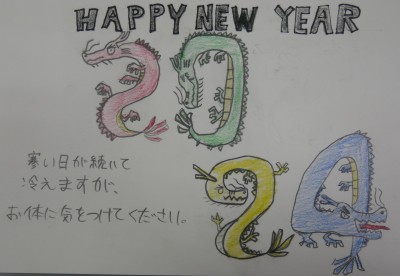 HAPPY NEW YEAR
20
24
寒い日が続いて
冷えますが、
お体に気をつけてください。